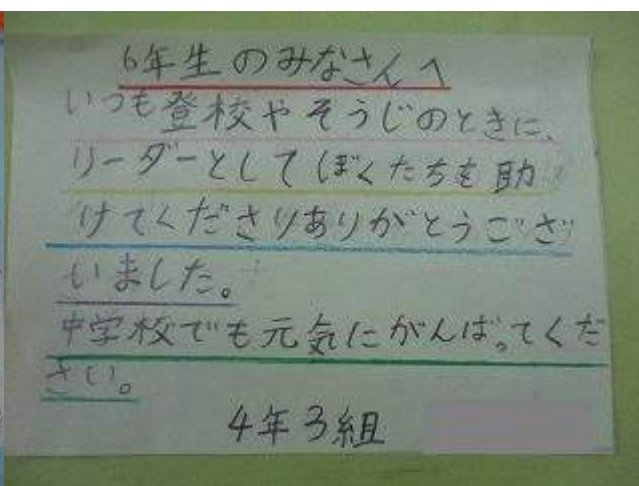 6年生のみなさんへ
いつも登校やそうじのときに、
リーダーとしてぼくたちを助
けてくださりありがとうござ
いました。
中学校でも元気にがんばってくだ
さい。
4年3組